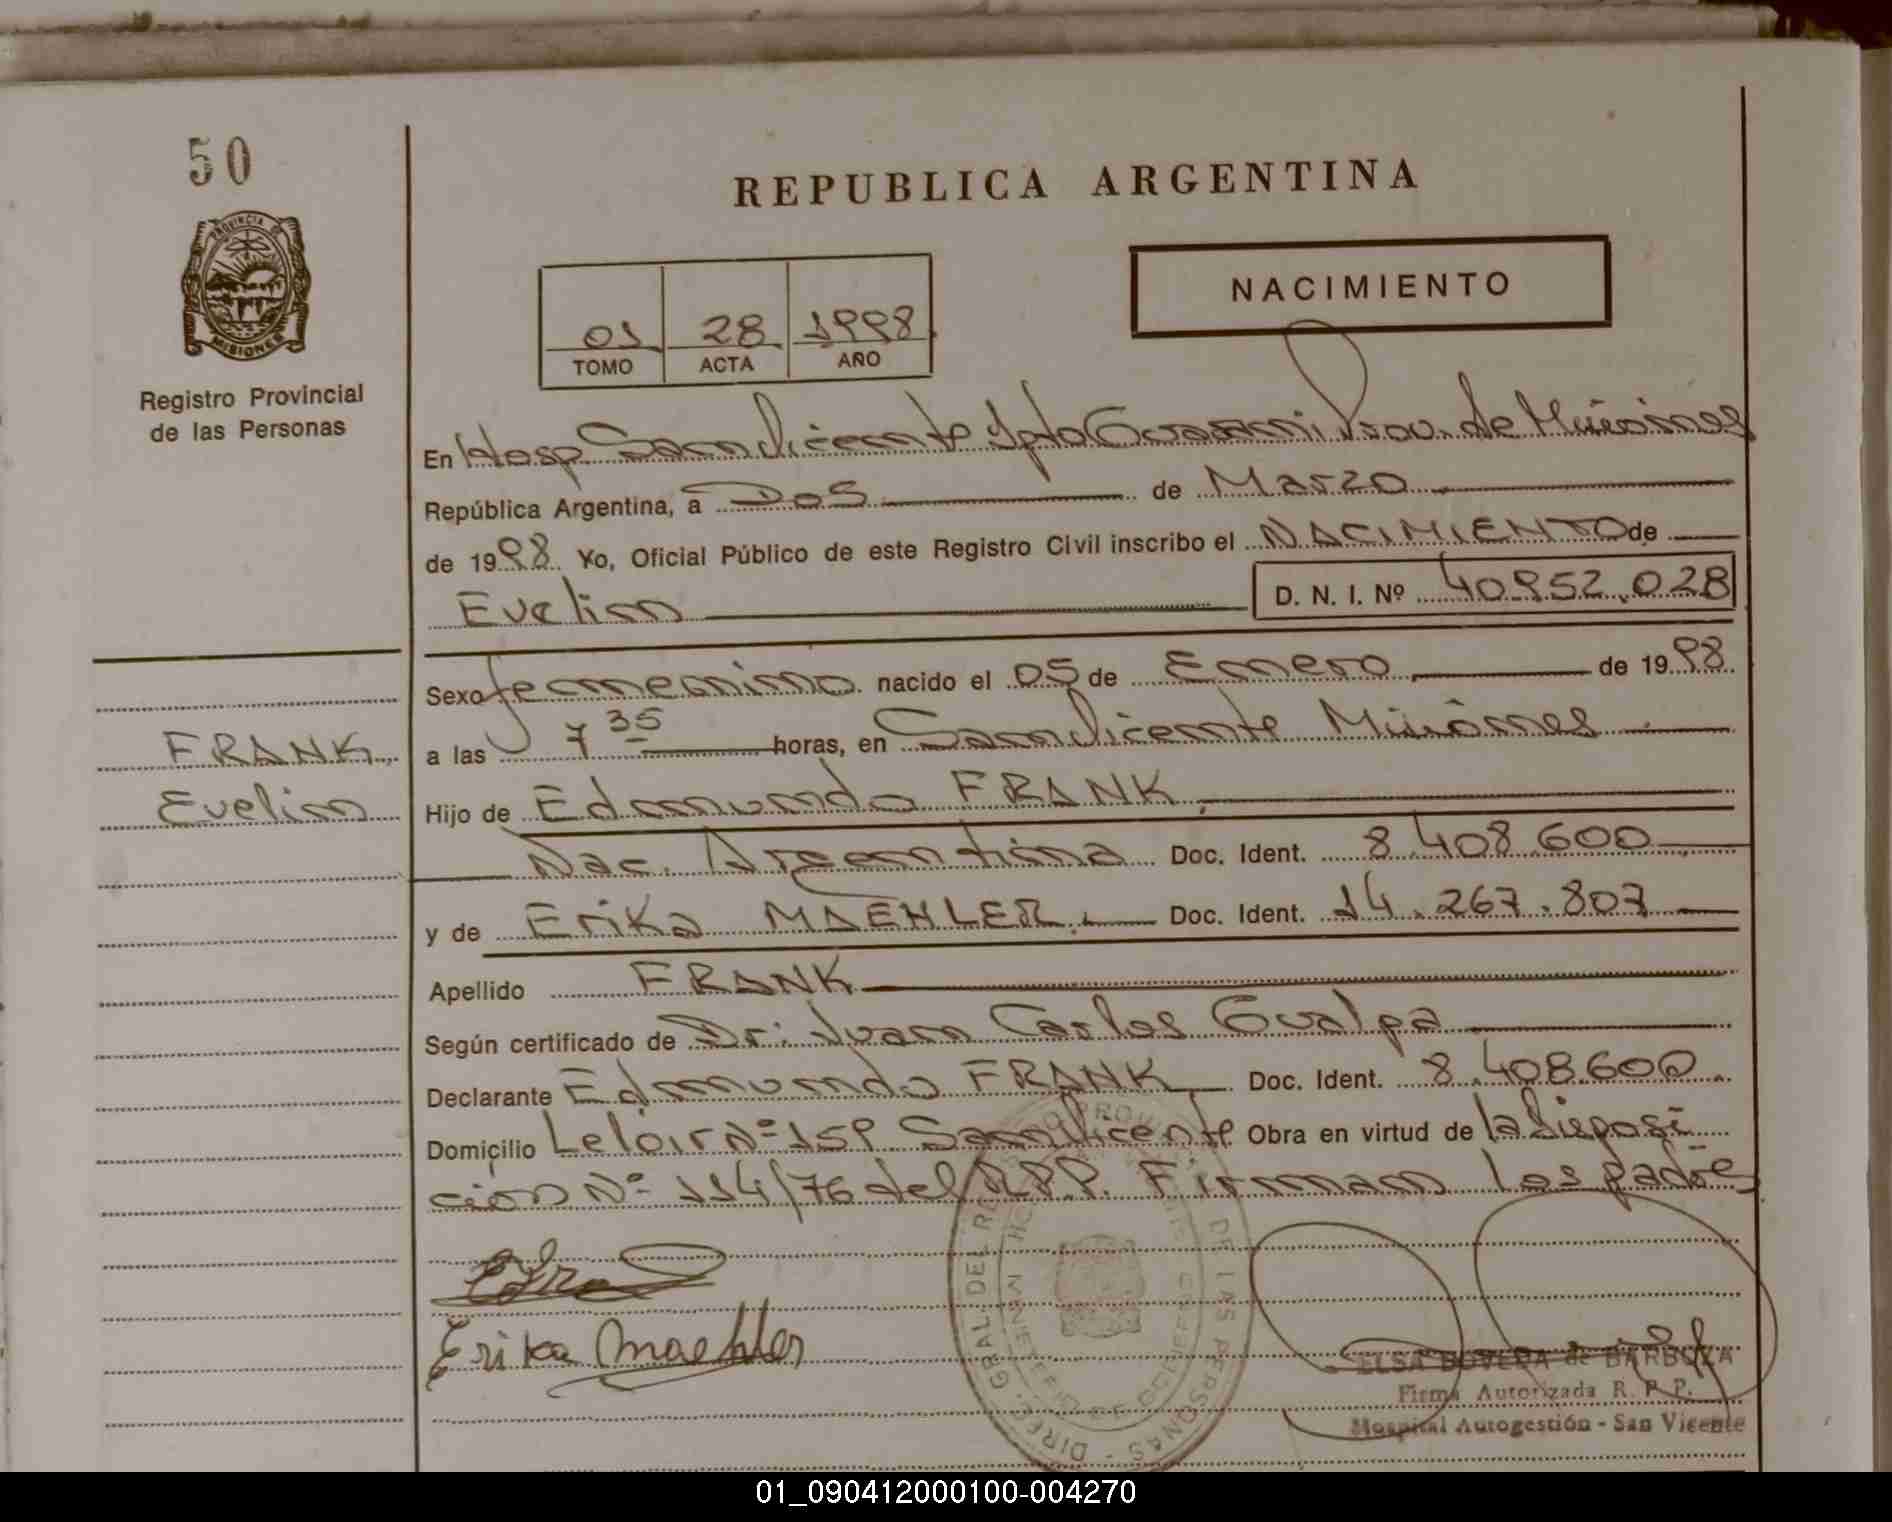 50
REPUBLICA ARGENTINA
NACIMIENTO
PROVINCIA DE
MISIONES
Registro Provincial
de las Personas
01 28 1998
TOMO ACTA AÑO
En Hosp San Vicente Dpto Guarani Prov. de Misiones
República Argentina, a Dos de Marzo
de 1998 Yo, Oficial Público de este Registro Civil inscribo el NACIMIENTO de
Evelin D. N. I. Nº 40.952.028
Sexo femenino nacido el 05 de Enero de 1998
FRANK
Evelin
a las 7 35 horas, en San Vicente Misiones
Hijo de Edmundo FRANK
Nac. Argentina Doc. Ident. 8.408.600
y de Erika MAEHLER. Doc. Ident. 14.267.807
Apellido FRANK
Según certificado de Dr: Juan Carlos Gualpa
Declarante Edmundo FRANK Doc. Ident. 8.408.600
Domicilio Leloir Nº 159 San Vicente Obra en virtud de la Disposi
ción Nº 114/76 del R.P.P. Firman los padres
Erika Maehler
DIREC. GRAL. DEL REG. DE LAS PERSONAS
ELSA BOVEDA de BARBOZA
Firma Autorizada R. P. P.
Hospital Autogestión - San Vicente
01_090412000100-004270